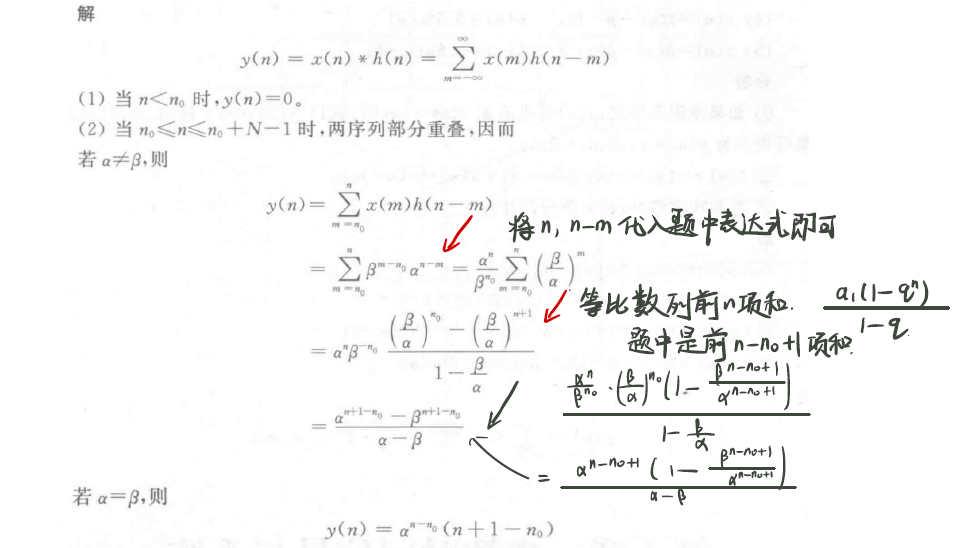 解
y(n) = x(n) * h(n) = ∑_{m=-∞}^{∞} x(m)h(n-m)
(1) 当 n<n₀ 时,y(n)=0。
(2) 当 n₀≤n≤n₀+N-1时,两序列部分重叠,因而
若 α≠β,则
y(n) = ∑_{m=n₀}^{n} x(m)h(n-m)
将n, n-m代入题中表达式即可
= ∑_{m=n₀}^{n} β^{m-n₀} α^{n-m} = α^n/β^{n₀} ∑_{m=n₀}^{n} (β/α)^m
等比数列前n项和. a₁(1-q^n)/(1-q)
题中是前n-n₀+1项和
= α^n β^{-n₀} ((β/α)^{n₀} - (β/α)^{n+1})/(1 - β/α)
(α^n/β^{n₀} · (β/α)^{n₀} (1 - β^{n-n₀+1}/α^{n-n₀+1}))/(1 - β/α)
= (α^{n+1-n₀} - β^{n+1-n₀})/(α - β)
= (α^{n-n₀+1} (1 - β^{n-n₀+1}/α^{n-n₀+1}))/(α - β)
若 α=β,则
y(n) = α^{n-n₀} (n+1-n₀)